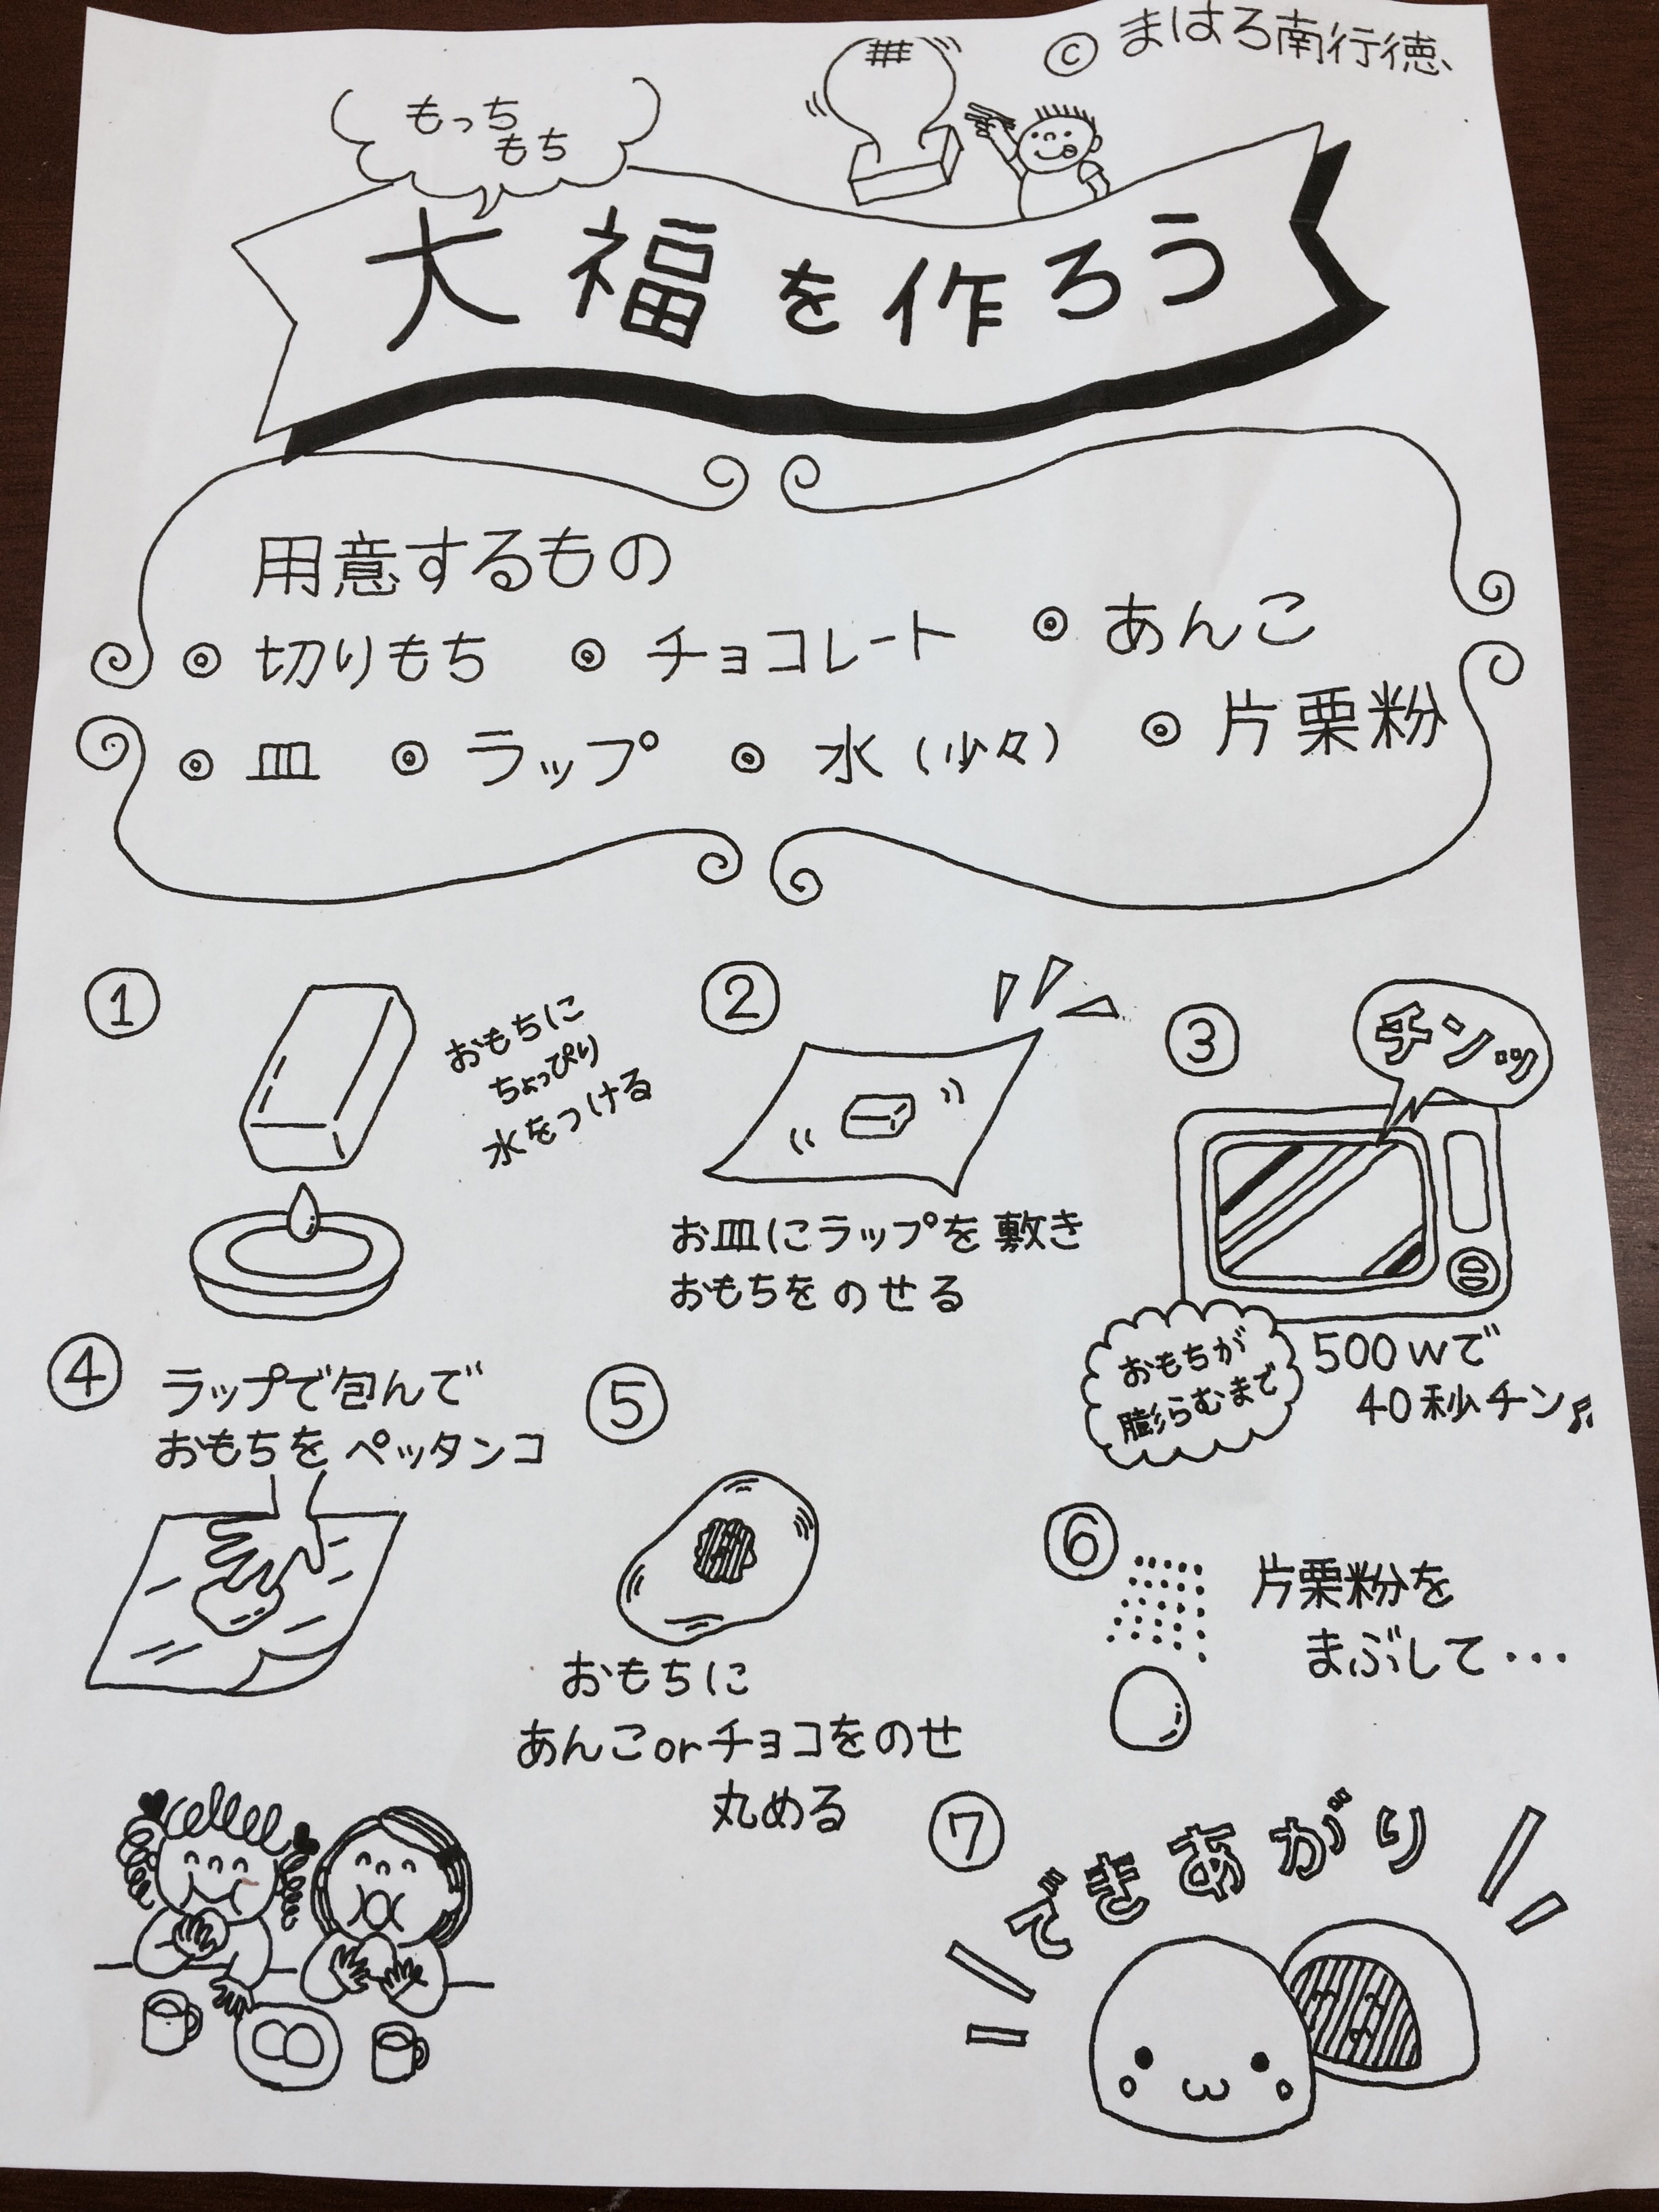 © まはろ南行徳
もっち
もち
大福を作ろう
用意するもの
◎ 切りもち ◎ チョコレート ◎ あんこ
◎ 皿 ◎ ラップ ◎ 水（少々） ◎ 片栗粉
①
おもちに
ちょっぴり
水をつける
②
お皿にラップを敷き
おもちをのせる
③
チンッ
おもちが
膨らむまで
500wで
40秒チン♬
④ ラップで包んで
おもちをペッタンコ
⑤
おもちに
あんこorチョコをのせ
丸める
⑥
片栗粉を
まぶして・・・
⑦ できあがり